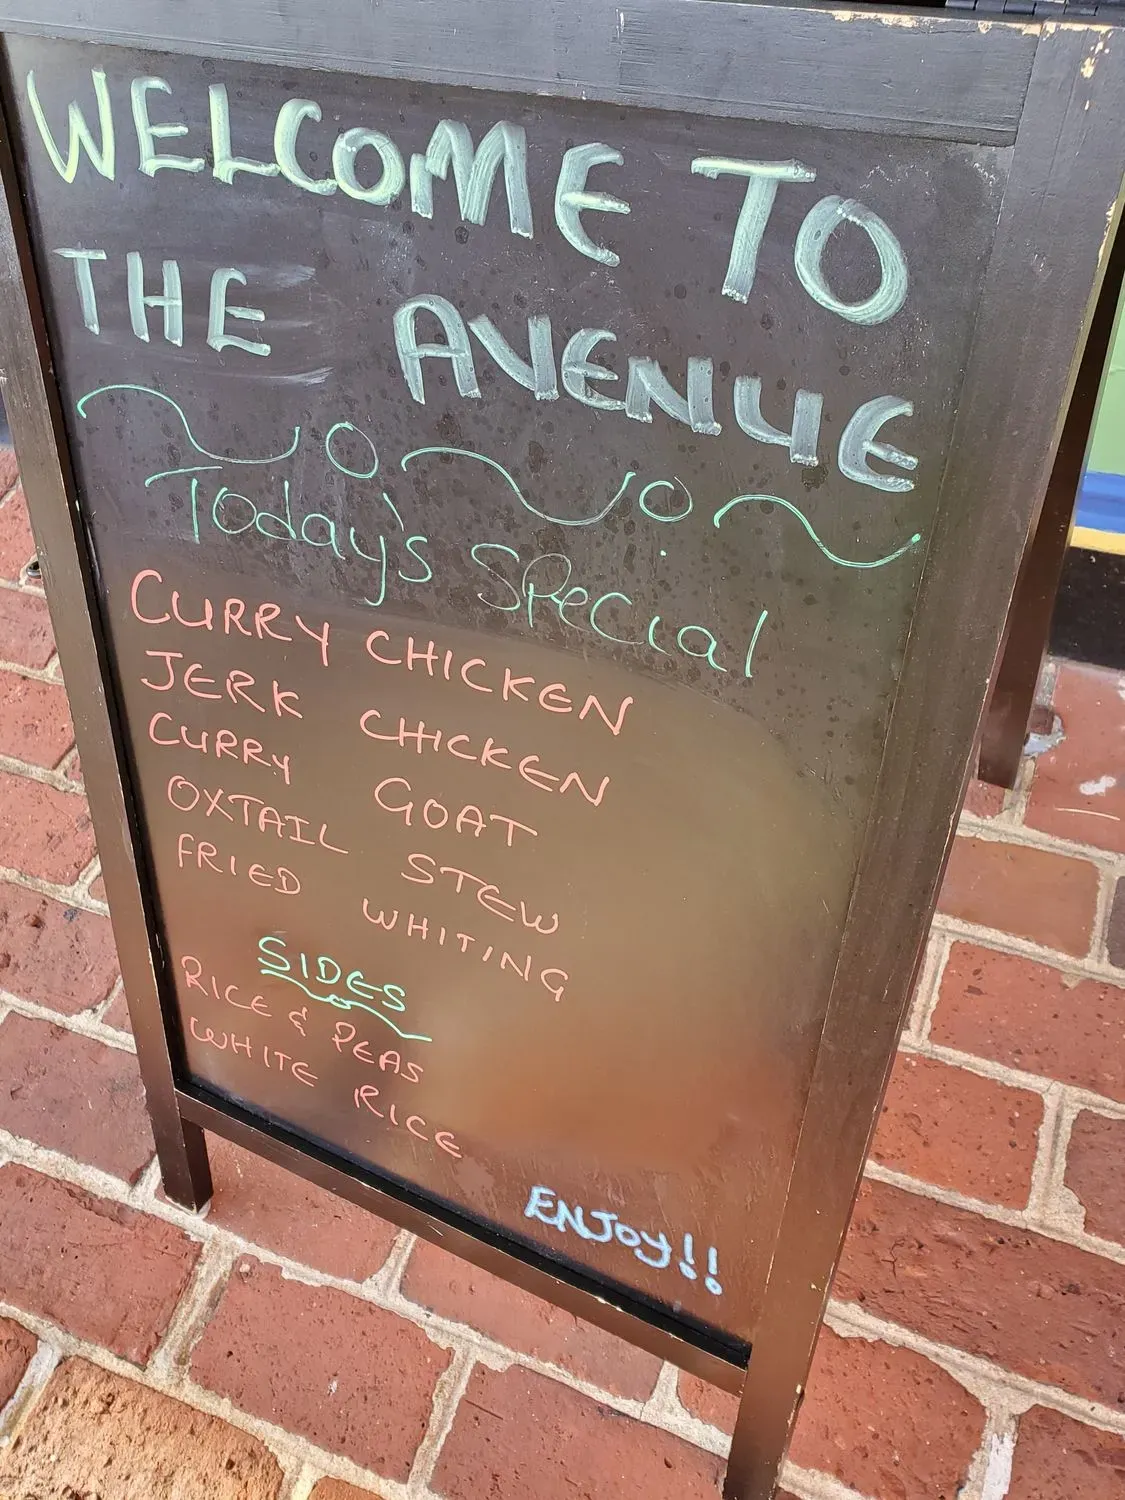 WELCOME TO
THE AVENUE
Today's Special
CURRY CHICKEN
JERK CHICKEN
CURRY GOAT
OXTAIL STEW
FRIED WHITING
SIDES
RICE & PEAS
WHITE RICE
ENJOY!!